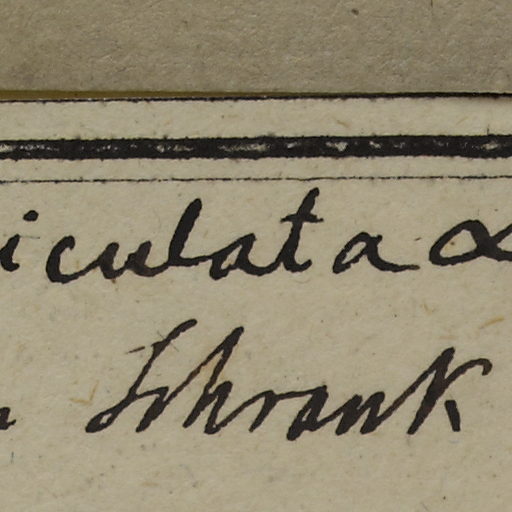 iculata α
Schrank